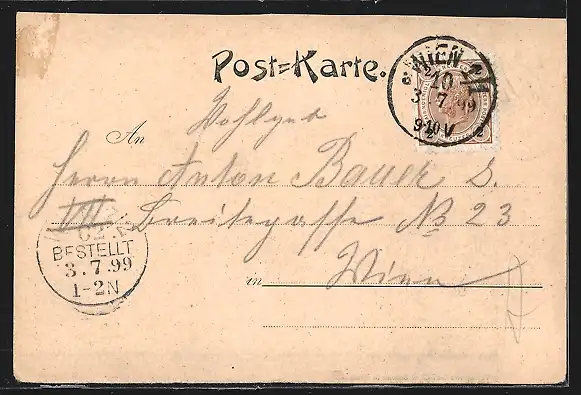 Post=Karte.
WIEN
10
3 7 99
9-10 V
An
Wohlgeb
Herrn Anton Bauer
VII. Breitegasse № 23
in Wien
BESTELLT
3.7.99
1-2N